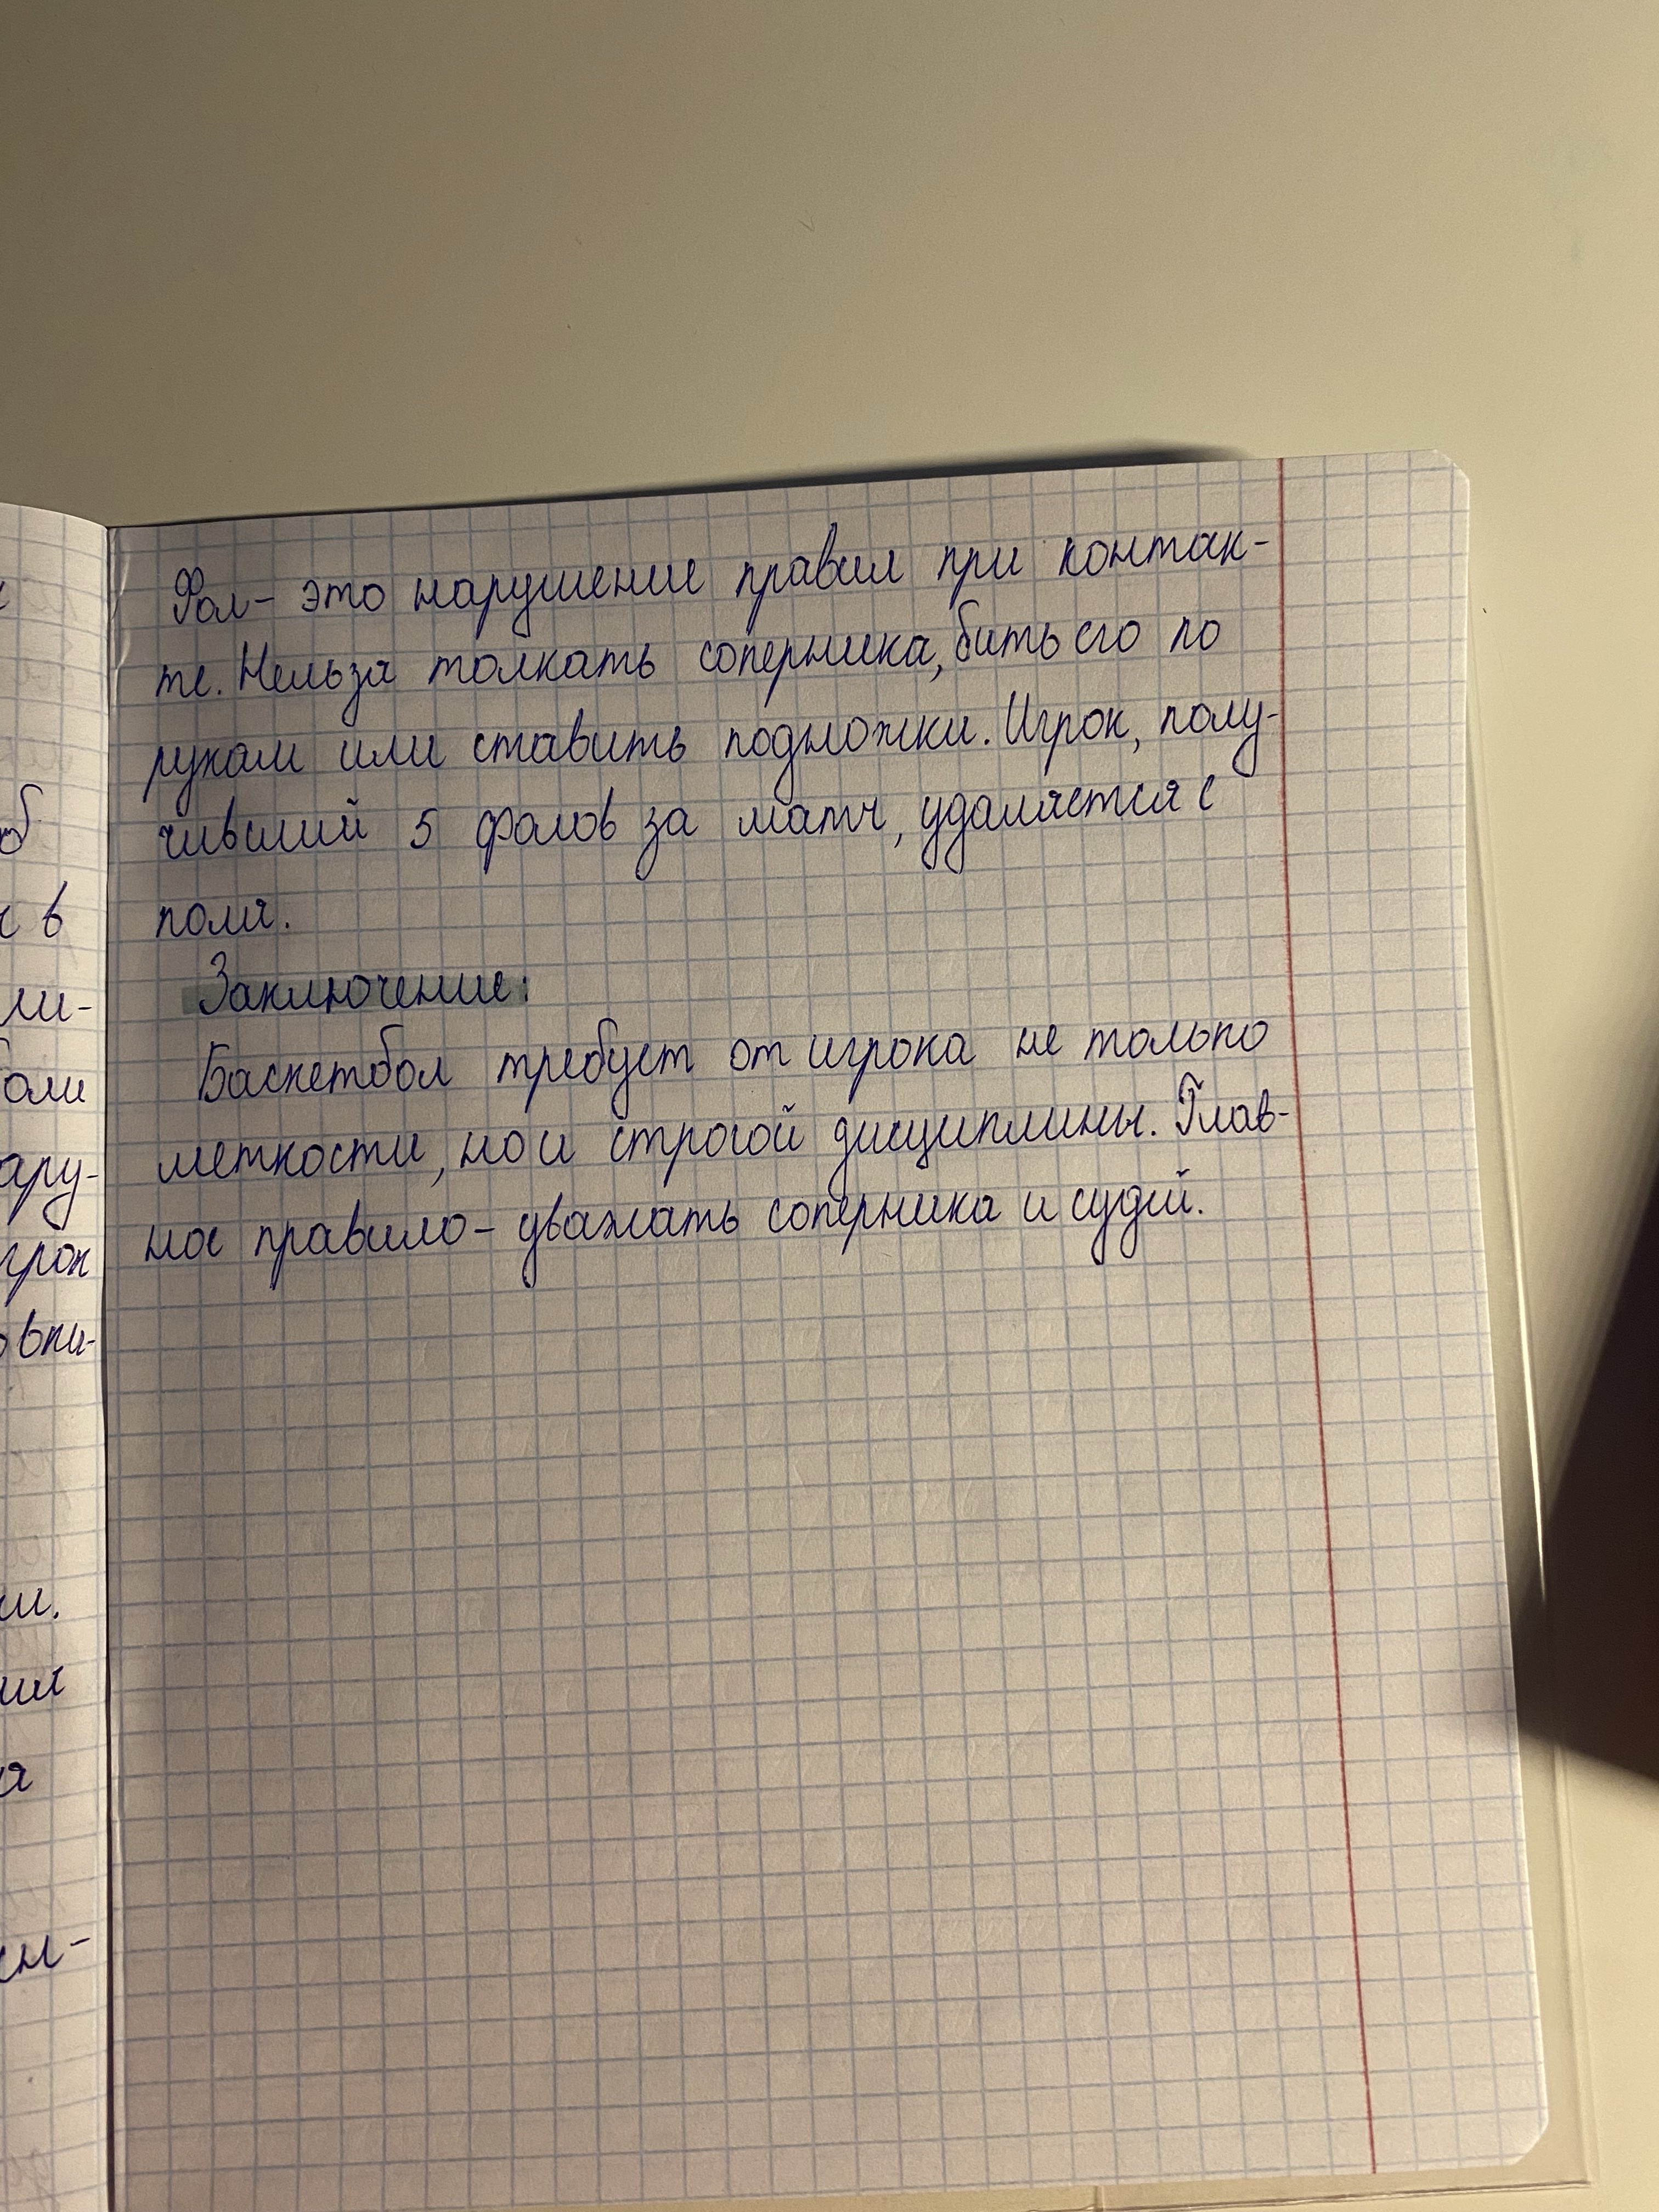 Фол – это нарушение правил при контак-
те. Нельзя толкать соперника, бить его по
рукам или ставить подножки. Игрок, полу-
чивший 5 фолов за матч, удаляется с
поля.
Заключение:
Баскетбол требует от игрока не только
меткости, но и строгой дисциплины. Глав-
ное правило – уважать соперника и судей.